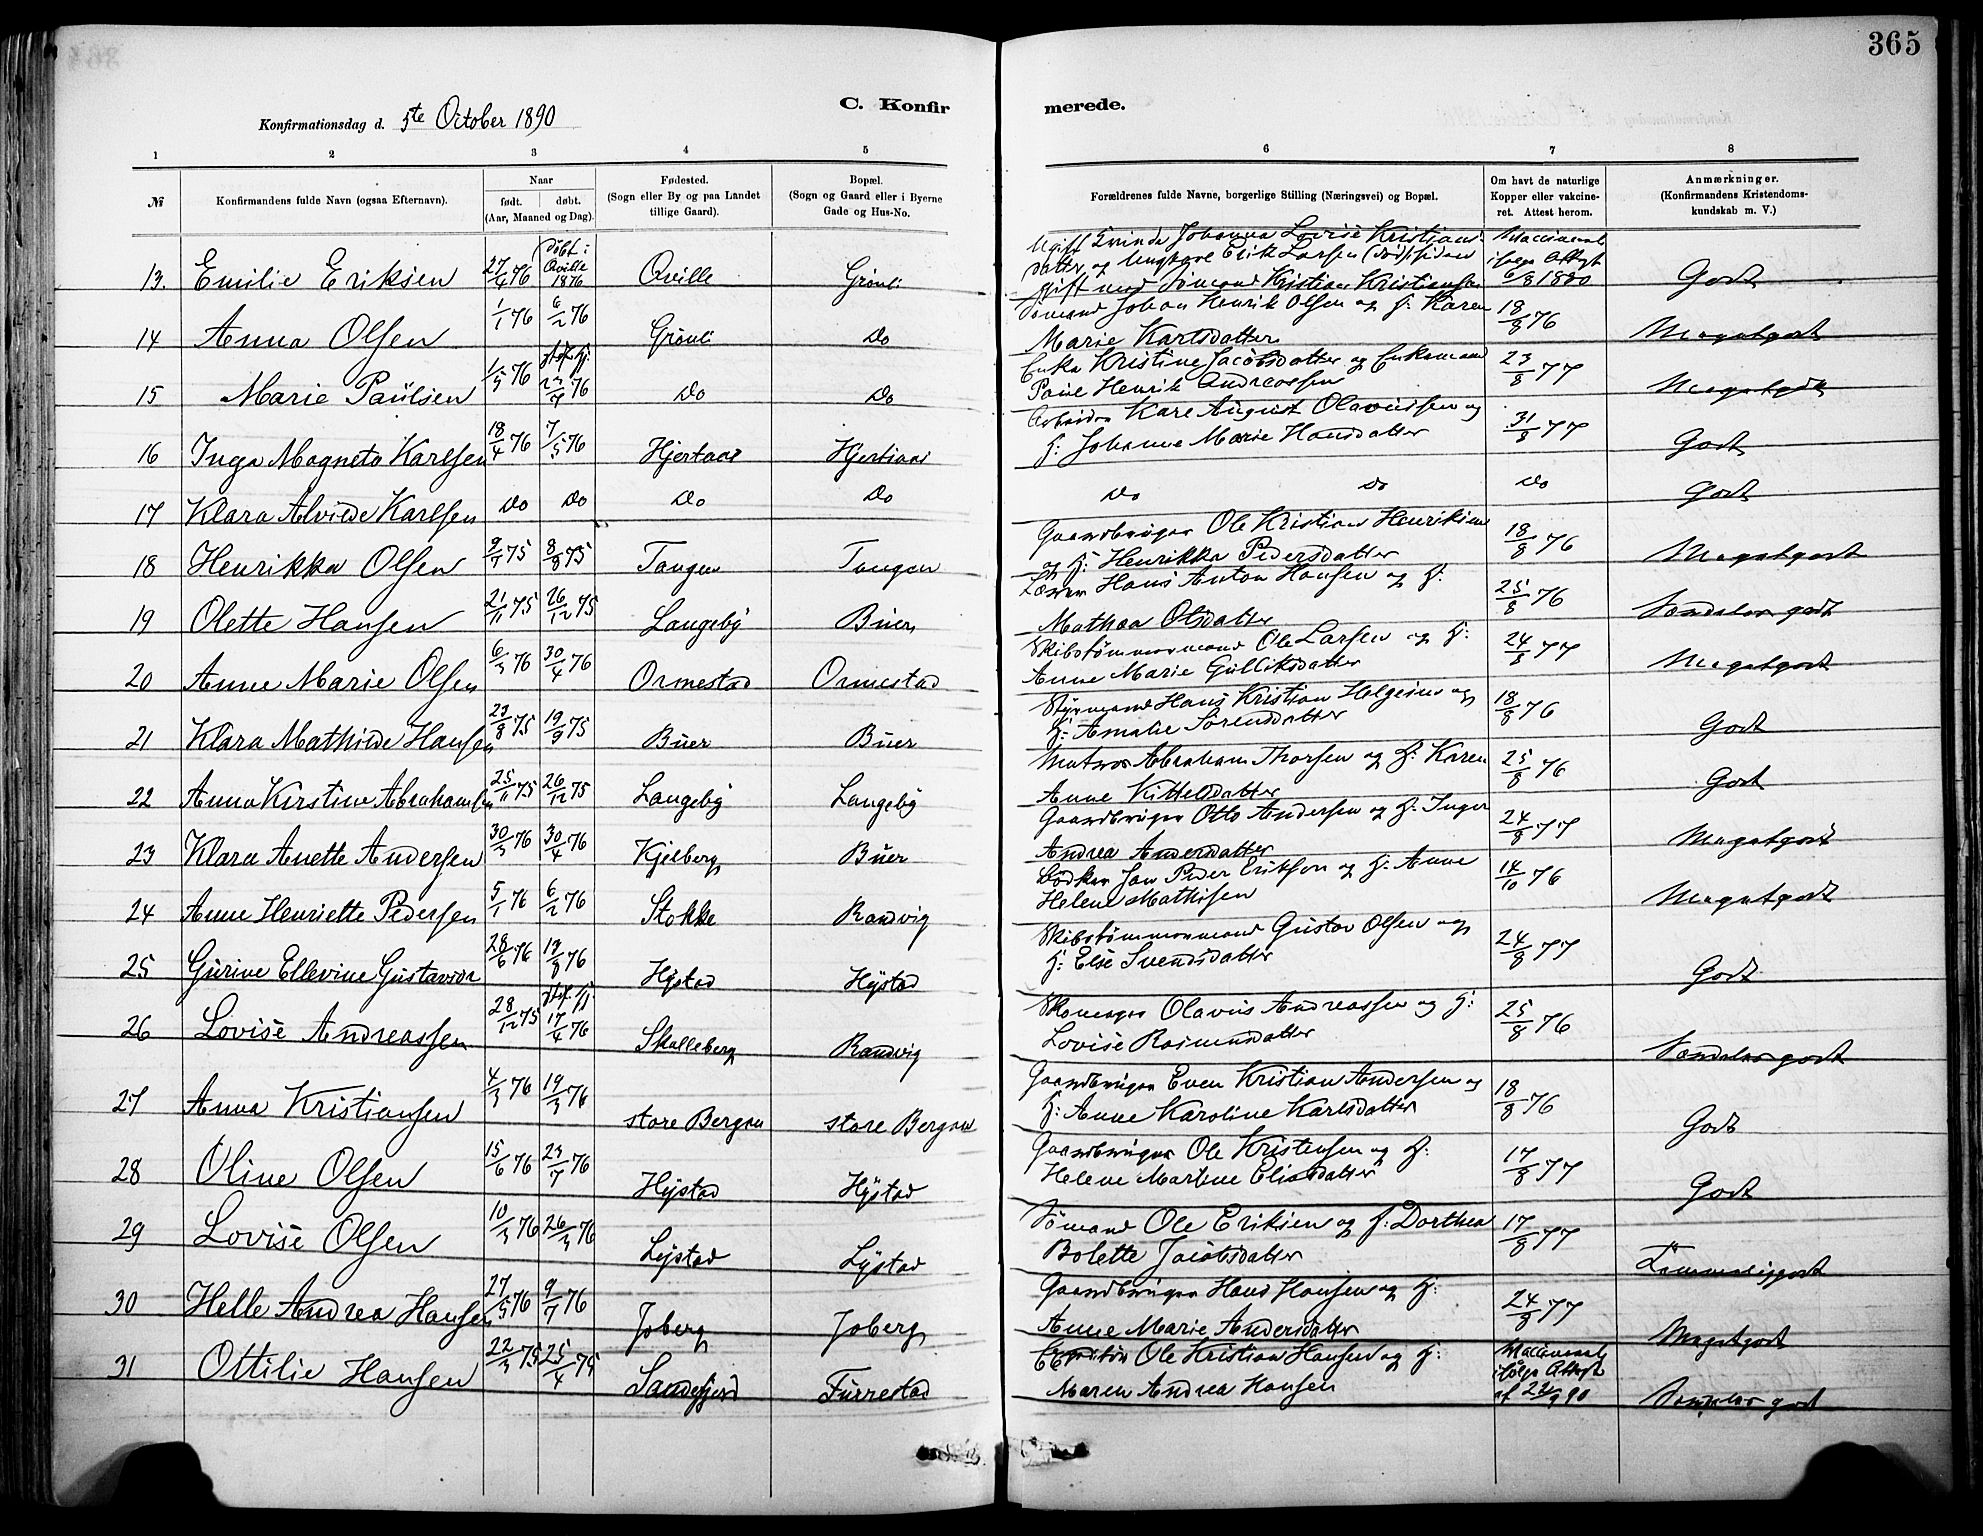 365
C. Konfirmerede.
Konfirmationsdag d. 5te October 1890
1 2 3 4 5 6 7 8
№
Konfirmandens fulde Navn (ogsaa Efternavn).
Naar
født. døbt.
(Aar, Maaned og Dag).
Fødested.
(Sogn eller By og paa Landet
tillige Gaard).
Bopæl.
(Sogn og Gaard eller i Byerne
Gade og Hus-No.
Forældrenes fulde Navne, borgerlige Stilling (Næringsvei) og Bopæl.
Om havt de naturlige
Kopper eller vakcine-
ret. Attest herom.
Anmærkninger.
(Konfirmandens Kristendoms-
kundskab m. V.)
13. Emilie Eriksen 27/4 76 døbt i Qville 1876 Qville Grönli
Ugift Qvinde Johanna Lovise Kristians-
datter og Ungkarl Erik Larsen (död) siden
gift med Sömand Kristian Kristiansen
Vaccineret ifølge Attest 6/8 1880 Godt
14 Anna Olsen 1/1 76 6/2 76 Grönli Do
Sömand Johan Henrik Olsen og H: Karen
Marie Karlsdatter 18/8 76 Megetgodt
15 Marie Paulsen 1/5 76 23/7 76 Do Do
Enke Kristine Jacobsdatter og Enkemand
Paul Henrik Andreassen 23/8 77 Megetgodt
16 Inga Magneta Karlsen 18/4 76 7/5 76 Hjertaas Hjertaas
Arbeider Karl August Olavussen og
H: Johanne Marie Hansdatter 31/8 77 Godt
17 Klara Alvilde Karlsen Do Do Do Do Do Do Do Godt
18 Henrikka Olsen 9/7 75 8/8 75 Tangen Tangen
Gaardbruger Ole Kristian Henriksen
og H: Henrikka Pedersdatter 18/8 76 Megetgodt
19 Olette Hansen 21/11 75 26/12 75 Langeby Buer
Hans Anton Hansen og H:
Mathea Olsdatter 25/8 76 Særdeles godt
20 Anne Marie Olsen 6/3 76 30/4 76 Ormestad Ormestad
Skibstømmermand Ole Larsen og H:
Anne Marie Gulliksdatter 24/8 77 Megetgodt
21 Klara Mathilde Hansen 23/8 75 19/9 75 Buer Buer
Styrmand Hans Kristian Helgesen og
H: Amalie Sörensdatter 18/8 76 Godt
22 Anna Kirstine Abrahamsen 25/11 75 26/12 75 Langeby Langeby
Matros Abraham Thorsen og H: Karen
Anne Kittelsdatter 25/8 76 Godt
23 Klara Anette Andersen 30/3 76 30/4 76 Kjelberg Buer
Gaardbruger Otto Andersen og H: Inger
Andrea Andersdatter 24/8 77 Megetgodt
24 Anne Henriette Pedersen 5/1 76 6/2 76 Stokke Ranvig
Bödker Jan Peder Erikson og H: Anne
Helene Mathisen 14/10 76 Megetgodt
25 Gurine Ellevine Gustavsen 28/6 76 19/8 76 Hystad Hystad
Skibstømmermand Gustav Olsen og
H: Else Svendsdatter 24/8 77 Godt
26 Lovise Andreassen 28/12 75 17/4 76 Skalleberg Ranvig
Skomager Olavus Andreassen og H:
Lovise Rasmusdatter 25/8 76 Særdeles godt
27 Anna Kristiansen 4/3 76 19/3 76 store Bergan store Bergan
Gaardbruger Even Kristian Andersen og
H: Anne Karoline Karlsdatter 18/8 76 Godt
28 Oline Olsen 15/6 76 23/7 76 Hystad Hystad
Gaardbruger Ole Kristensen og H:
Helene Martine Eliasdatter 17/8 77 Godt
29 Lovise Olsen 10/3 76 26/3 76 Lystad Lystad
Sömand Ole Eriksen og H: Dorthea
Bolette Jacobsdatter 17/8 77 Temmeliggodt
30 Helle Andrea Hansen 27/5 76 9/7 76 Joberg Joberg
Gaardbruger Hans Hansen og H:
Anne Marie Andersdatter 24/8 77 Megetgodt
31 Ottilie Hansen 22/3 75 25/4 75 Sandefjord Furrestad
Ole Kristian Hansen og H:
Maren Andrea Hansen
Vaccineret ifølge Attest af Særdeles godt